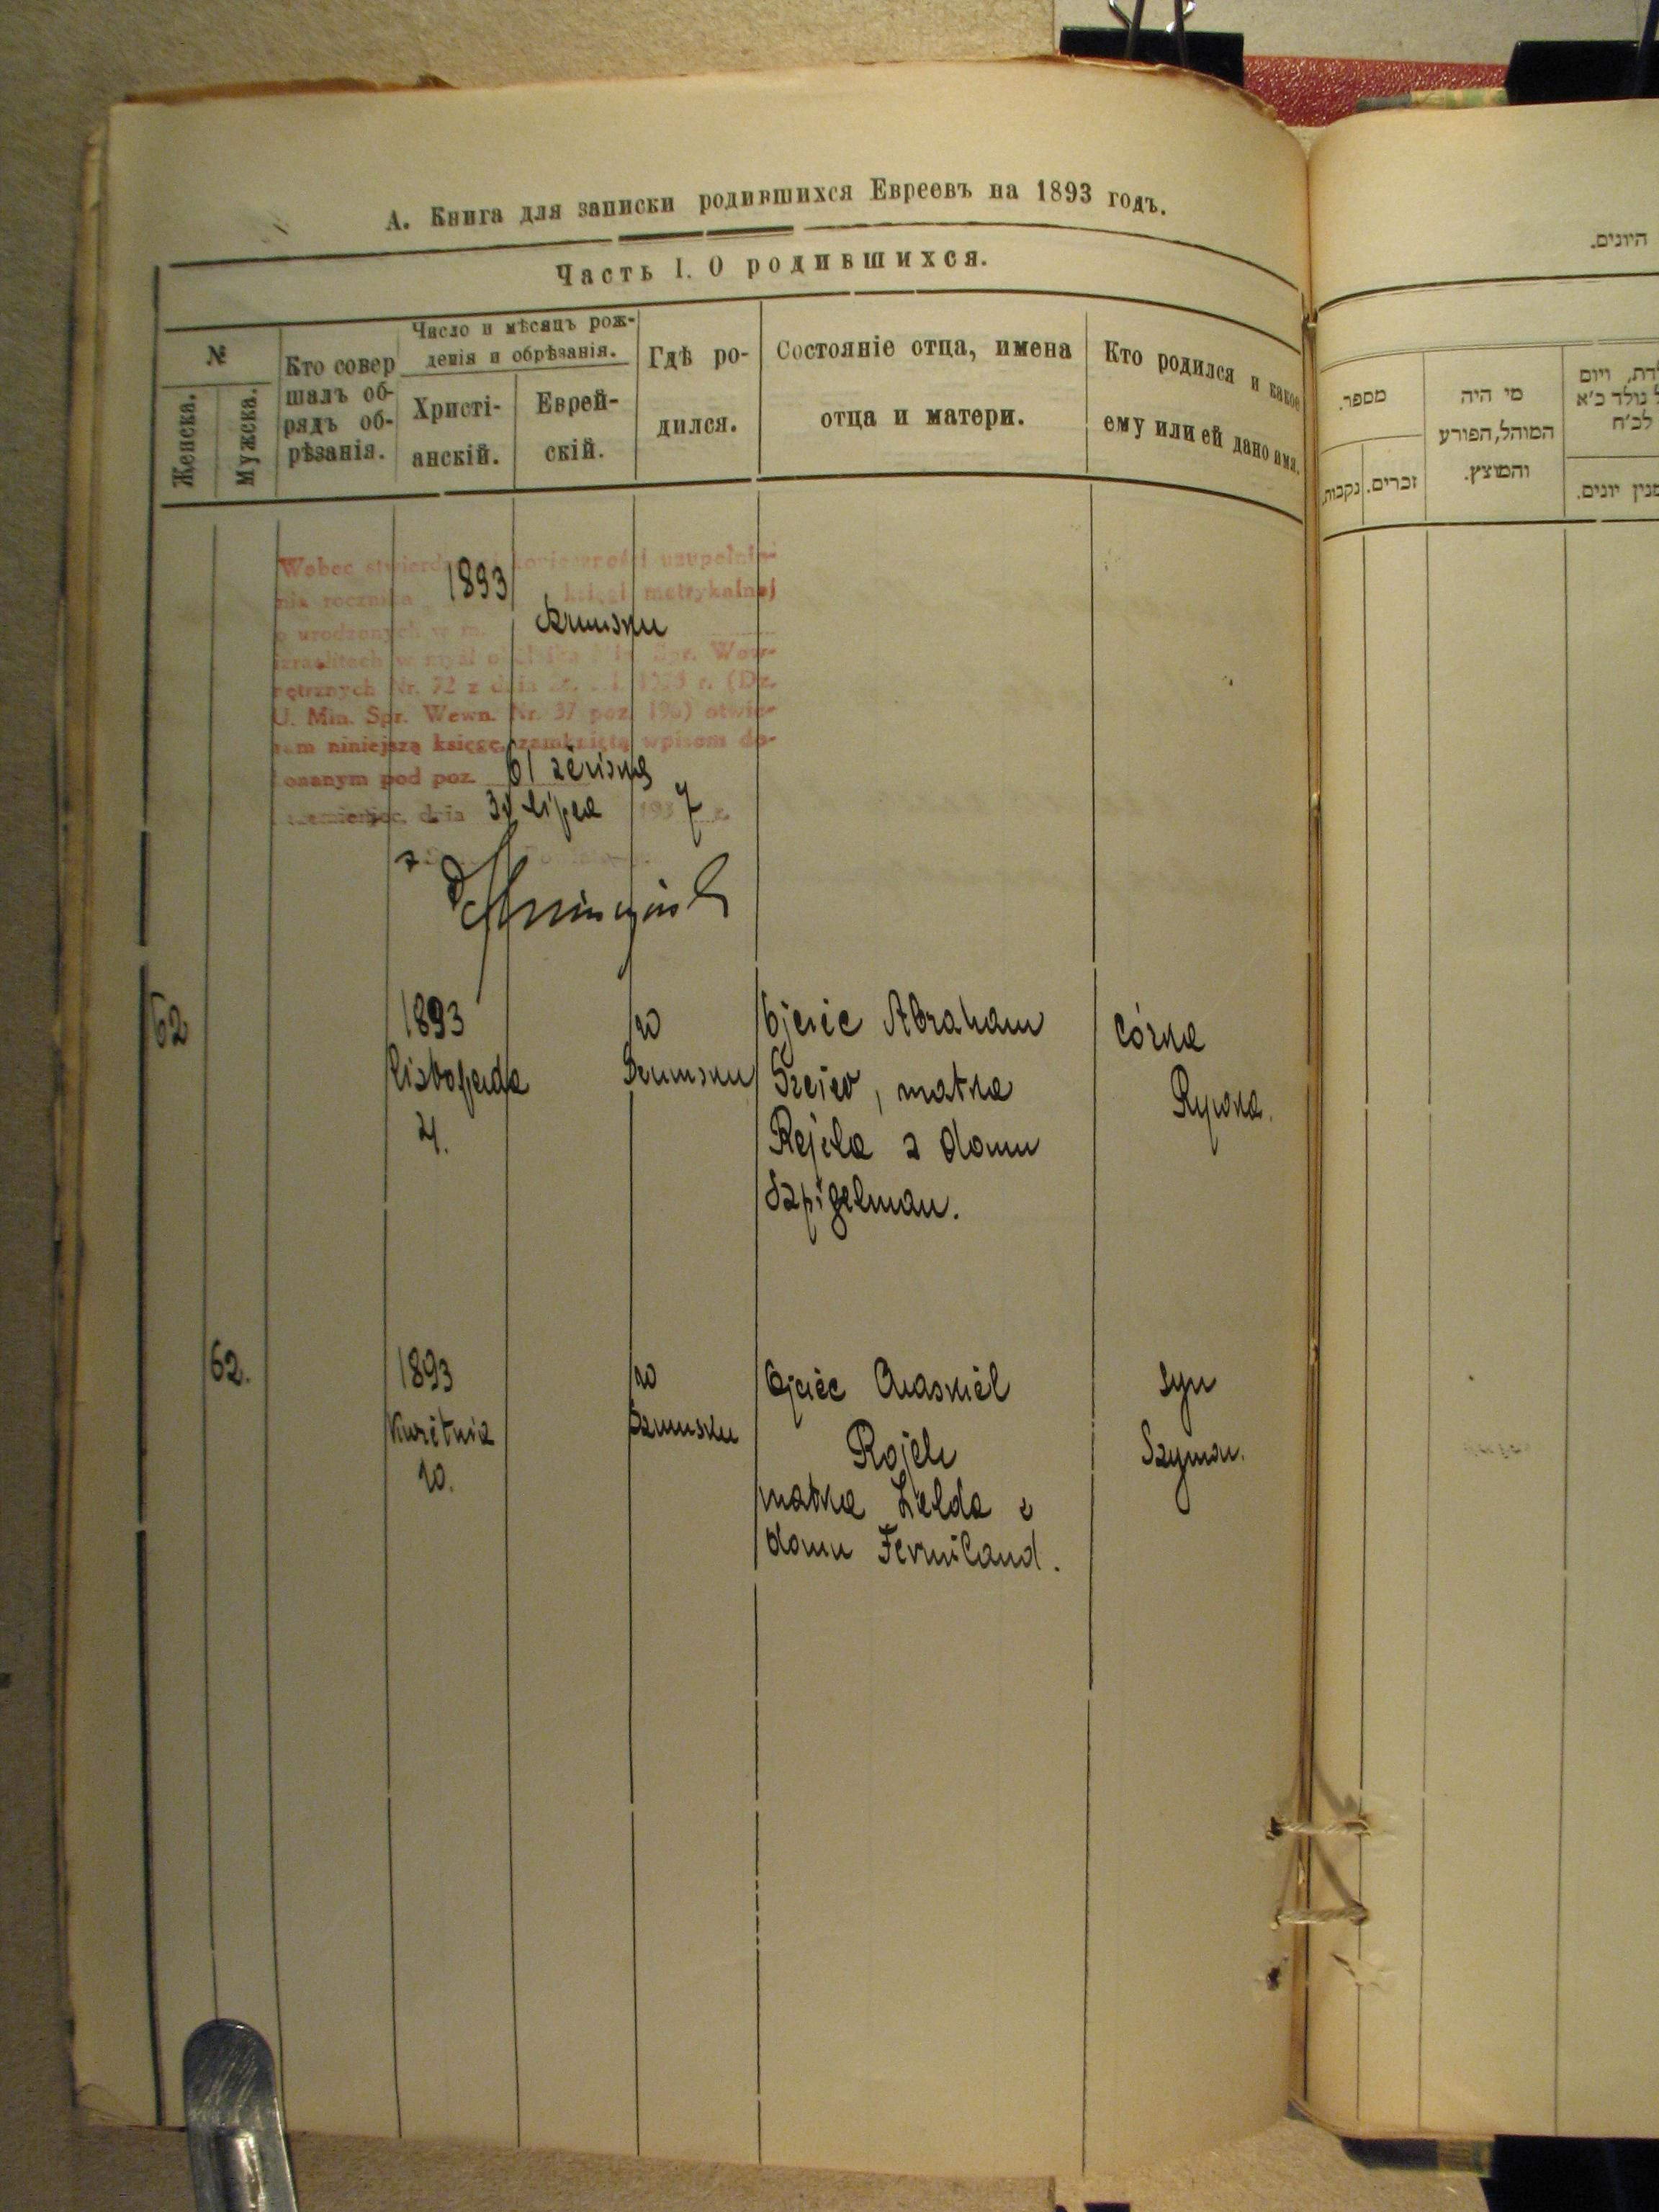 А. Книга для записки родившихся Евреевъ на 1893 годъ.
Часть I. О родившихся.
№
Женска.
Мужска.
Кто совер
шалъ об-
рядъ об-
рѣзанія.
Число и мѣсяцъ рож-
денія и обрѣзанія.
Христі-
анскій.
Еврей-
скій.
Гдѣ ро-
дился.
Состояніе отца, имена
отца и матери.
Кто родился и какое
ему или ей дано имя.
Wobec konieczności uzupełnie-
nia rocznika 1893 księgi metrykalnej
o urodzonych w m.
izraelitach w myśl okólnika Min. Spr. Wew-
nętrznych Nr. 72 z dnia
U. Min. Spr. Wewn. Nr. 37 poz. 196) otwie-
ram niniejszą księgę, zamkniętą wpisem do-
konanym pod poz. 61 żeńską
dnia lipca 1937 r.
62
1893
Listopada
w
Ojciec Abraham
matka
Rejela z domu
Szpigelman.
córka
Rywka.
62.
1893
Kwietnia
10.
w
Ojciec Chaskiel
matka Zelda z
domu
syn
Szymon.
היונים.
מספר.
נקבות
זכרים.
מי היה
המוהל, הפורע
והמוצץ.
ויום
לכ״ח
יונים.